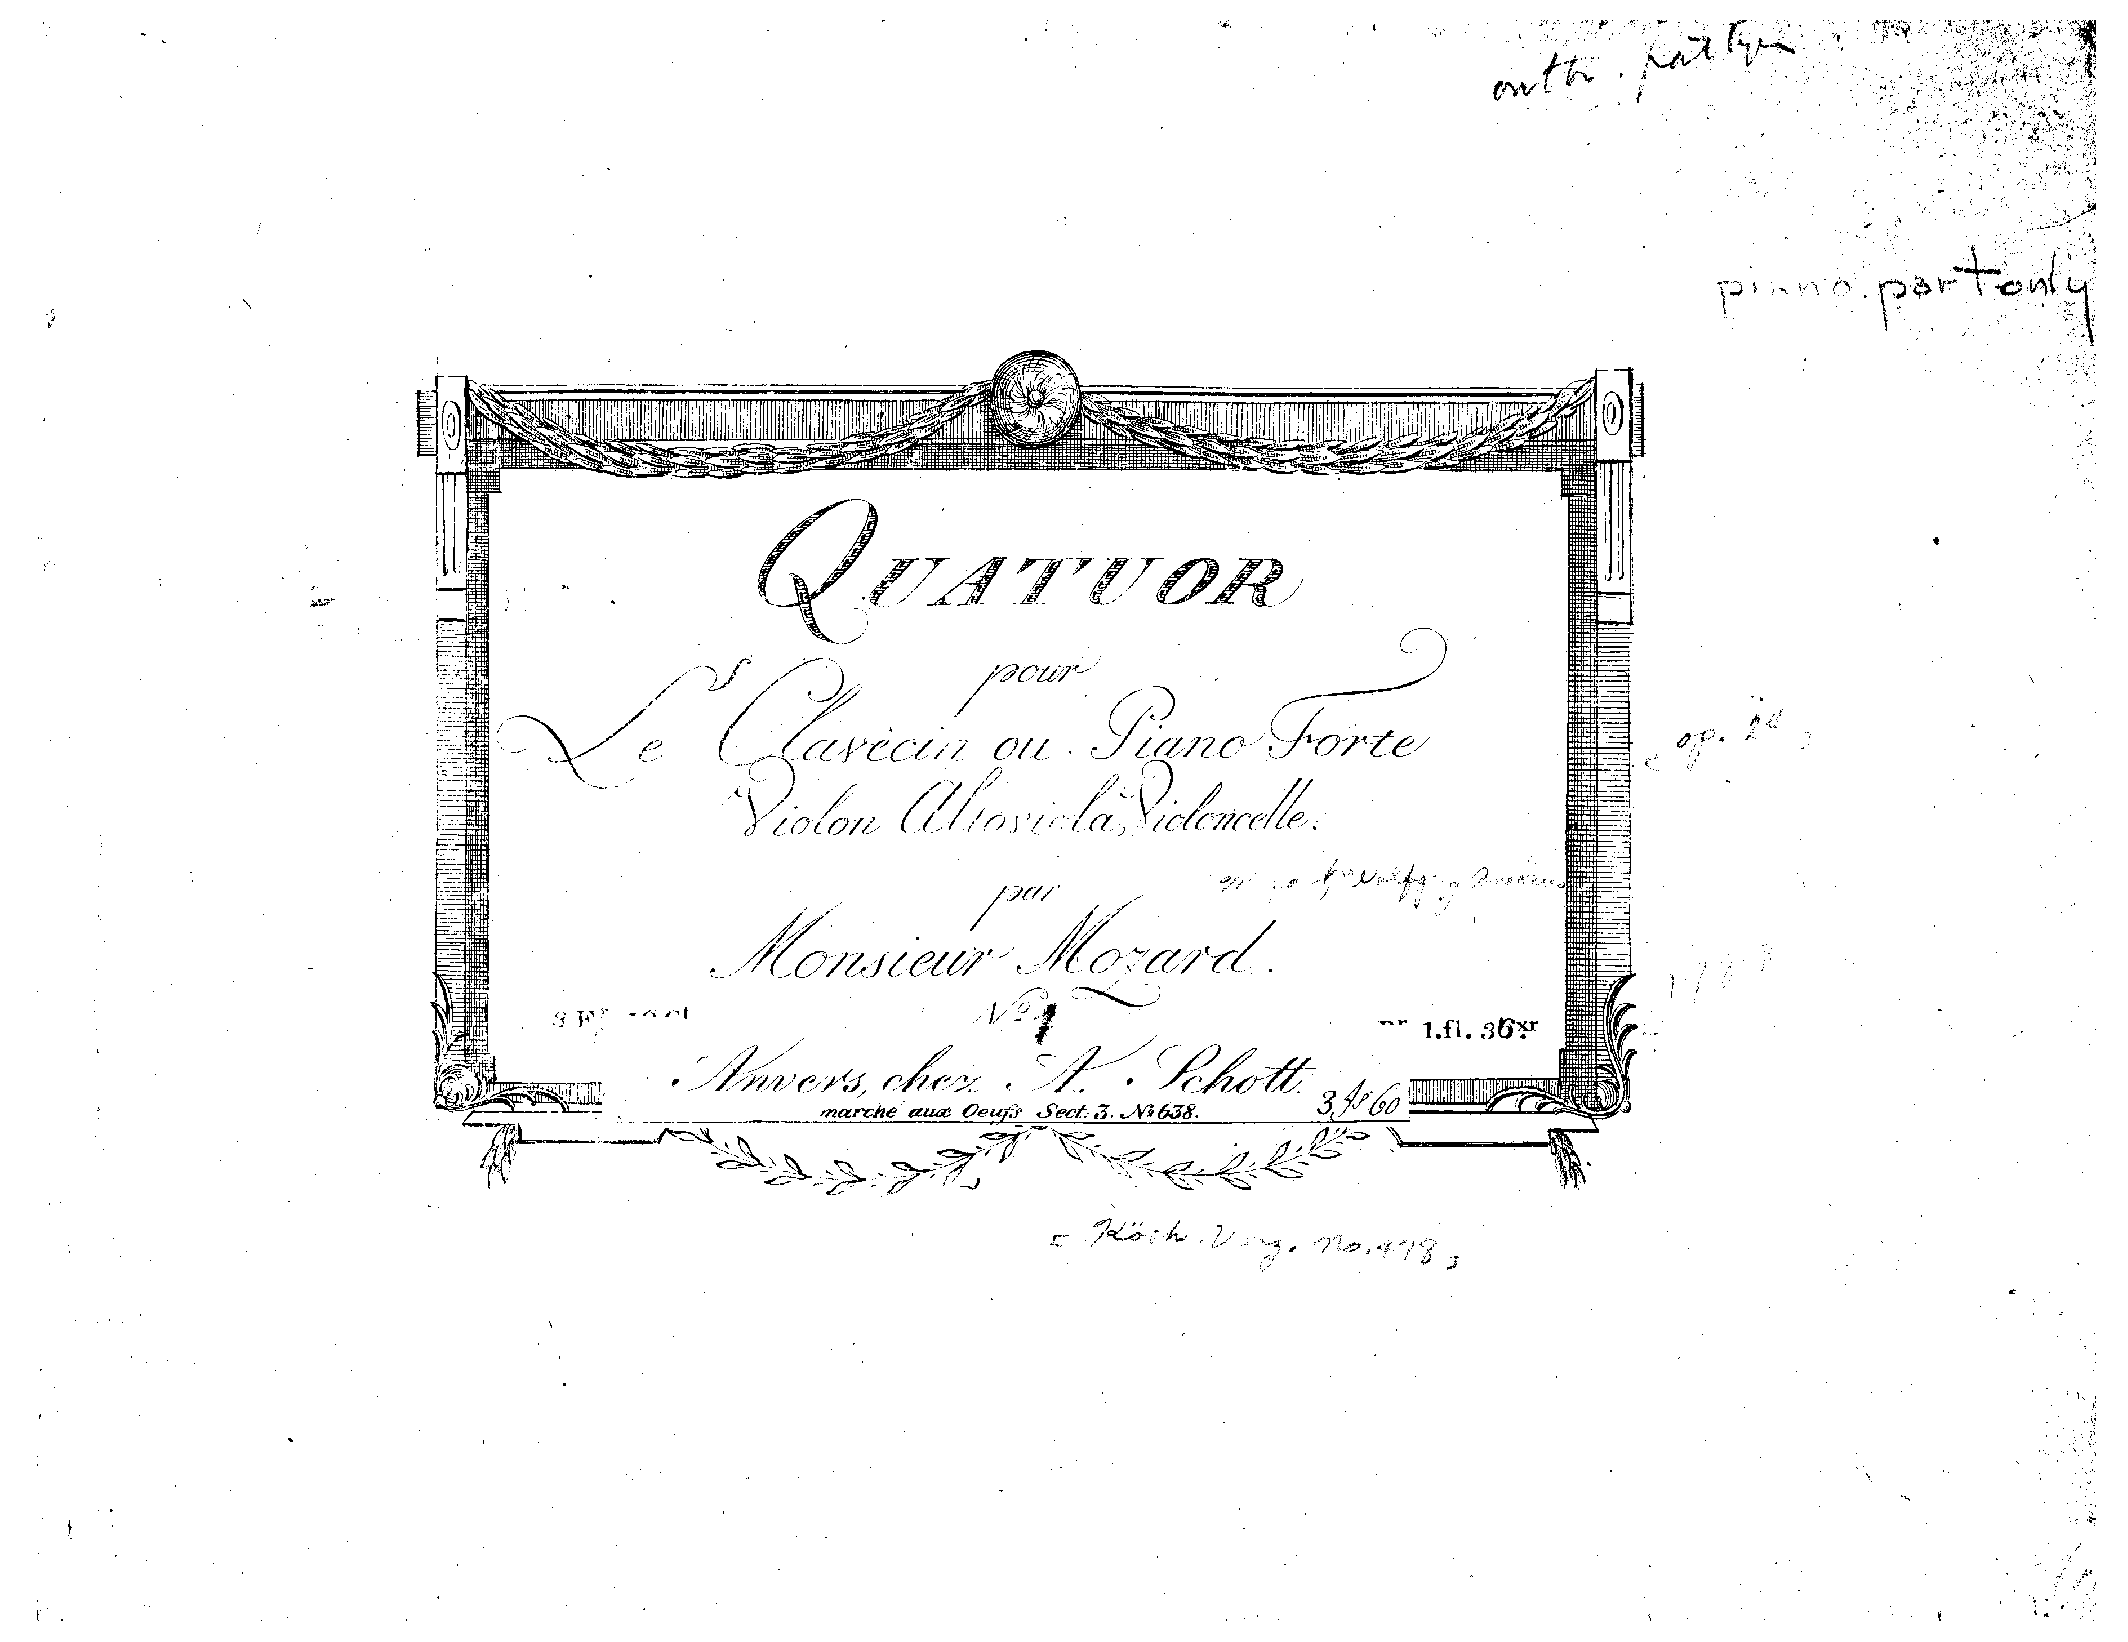 piano part only
QUATUOR
pour
Le Clavecin ou Piano Forte
Violon Altoviola, Violoncelle.
par
Monsieur Mozard.
No. 1
1.fl. 36xr
Anvers, chez A. Schott.
marche aux Oeufs Sect. 3. No 638.
op.
Köch. Verz. No. 478